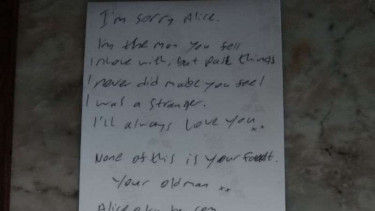 I'm sorry Alice.
I'm the man you fell
in love with, but past things
I never did made you feel
I was a stranger.
I'll always love you xx
None of this is your fault.
Your old man xx
Alice